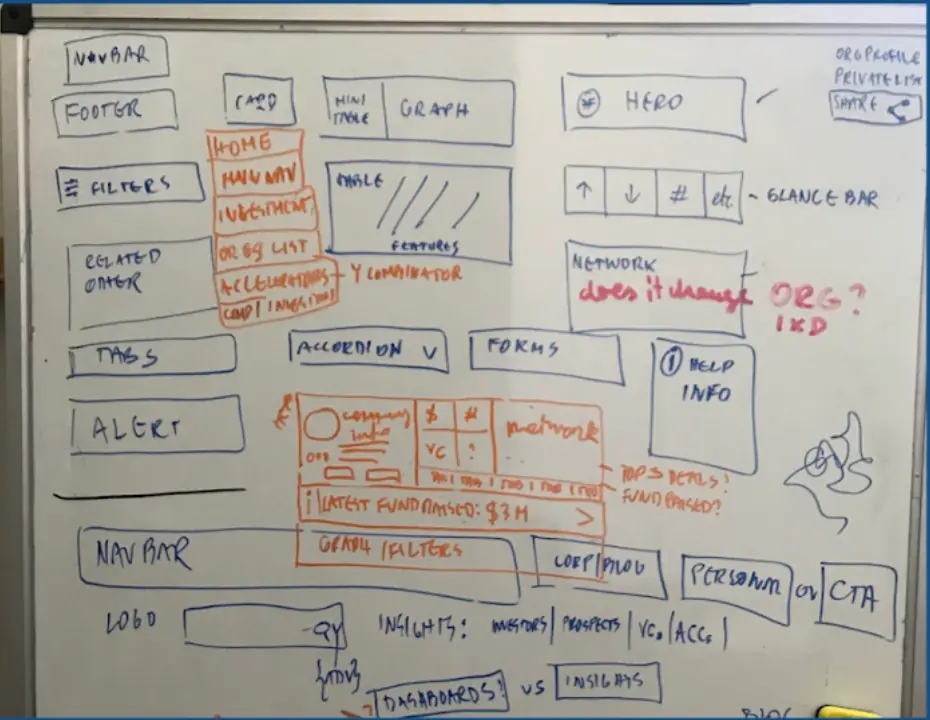 NAVBAR
ORG PROFILE
PRIVATE LIST
SHARE
FOOTER
CARD
MINI
TABLE
GRAPH
HERO
HOME
MAIN NAV
INVESTMENT
ORGS LIST
ACCELERATORS - Y COMBINATOR
COMP / INVESTORS
FILTERS
TABLE
FEATURES
↑ ↓ # etc - GLANCE BAR
RELATED
OTHER
NETWORK
does it change ORG?
IXD
TABS
ACCORDION V
FORMS
i HELP
INFO
ALERT
company
info
$ #
VC ?
network
TOP 3 DEALS?
FUNDRAISED?
i LATEST FUNDRAISED: $3M >
GRAPH / FILTERS
NAVBAR
PERSONA
or
CTA
LOGO
INSIGHTS: INVESTORS | PROSPECTS | VCs | ACCs |
DASHBOARDS?
VS
INSIGHTS
BLOG